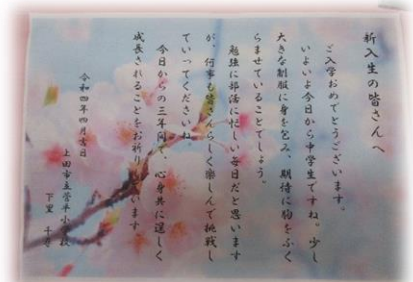 新入生の皆さんへ
ご入学おめでとうございます。
いよいよ今日から中学生ですね。少し
大きな制服に身を包み、期待に胸をふく
らませていることでしょう。
勉強に部活に忙しい毎日だと思います
が、何事も らしく楽しんで挑戦し
ていってくださいね。
今日からの三年間で、心身共に逞しく
成長されることをお祈り います。
令和四年四月吉日
上田市立菅平小 校
下里 千